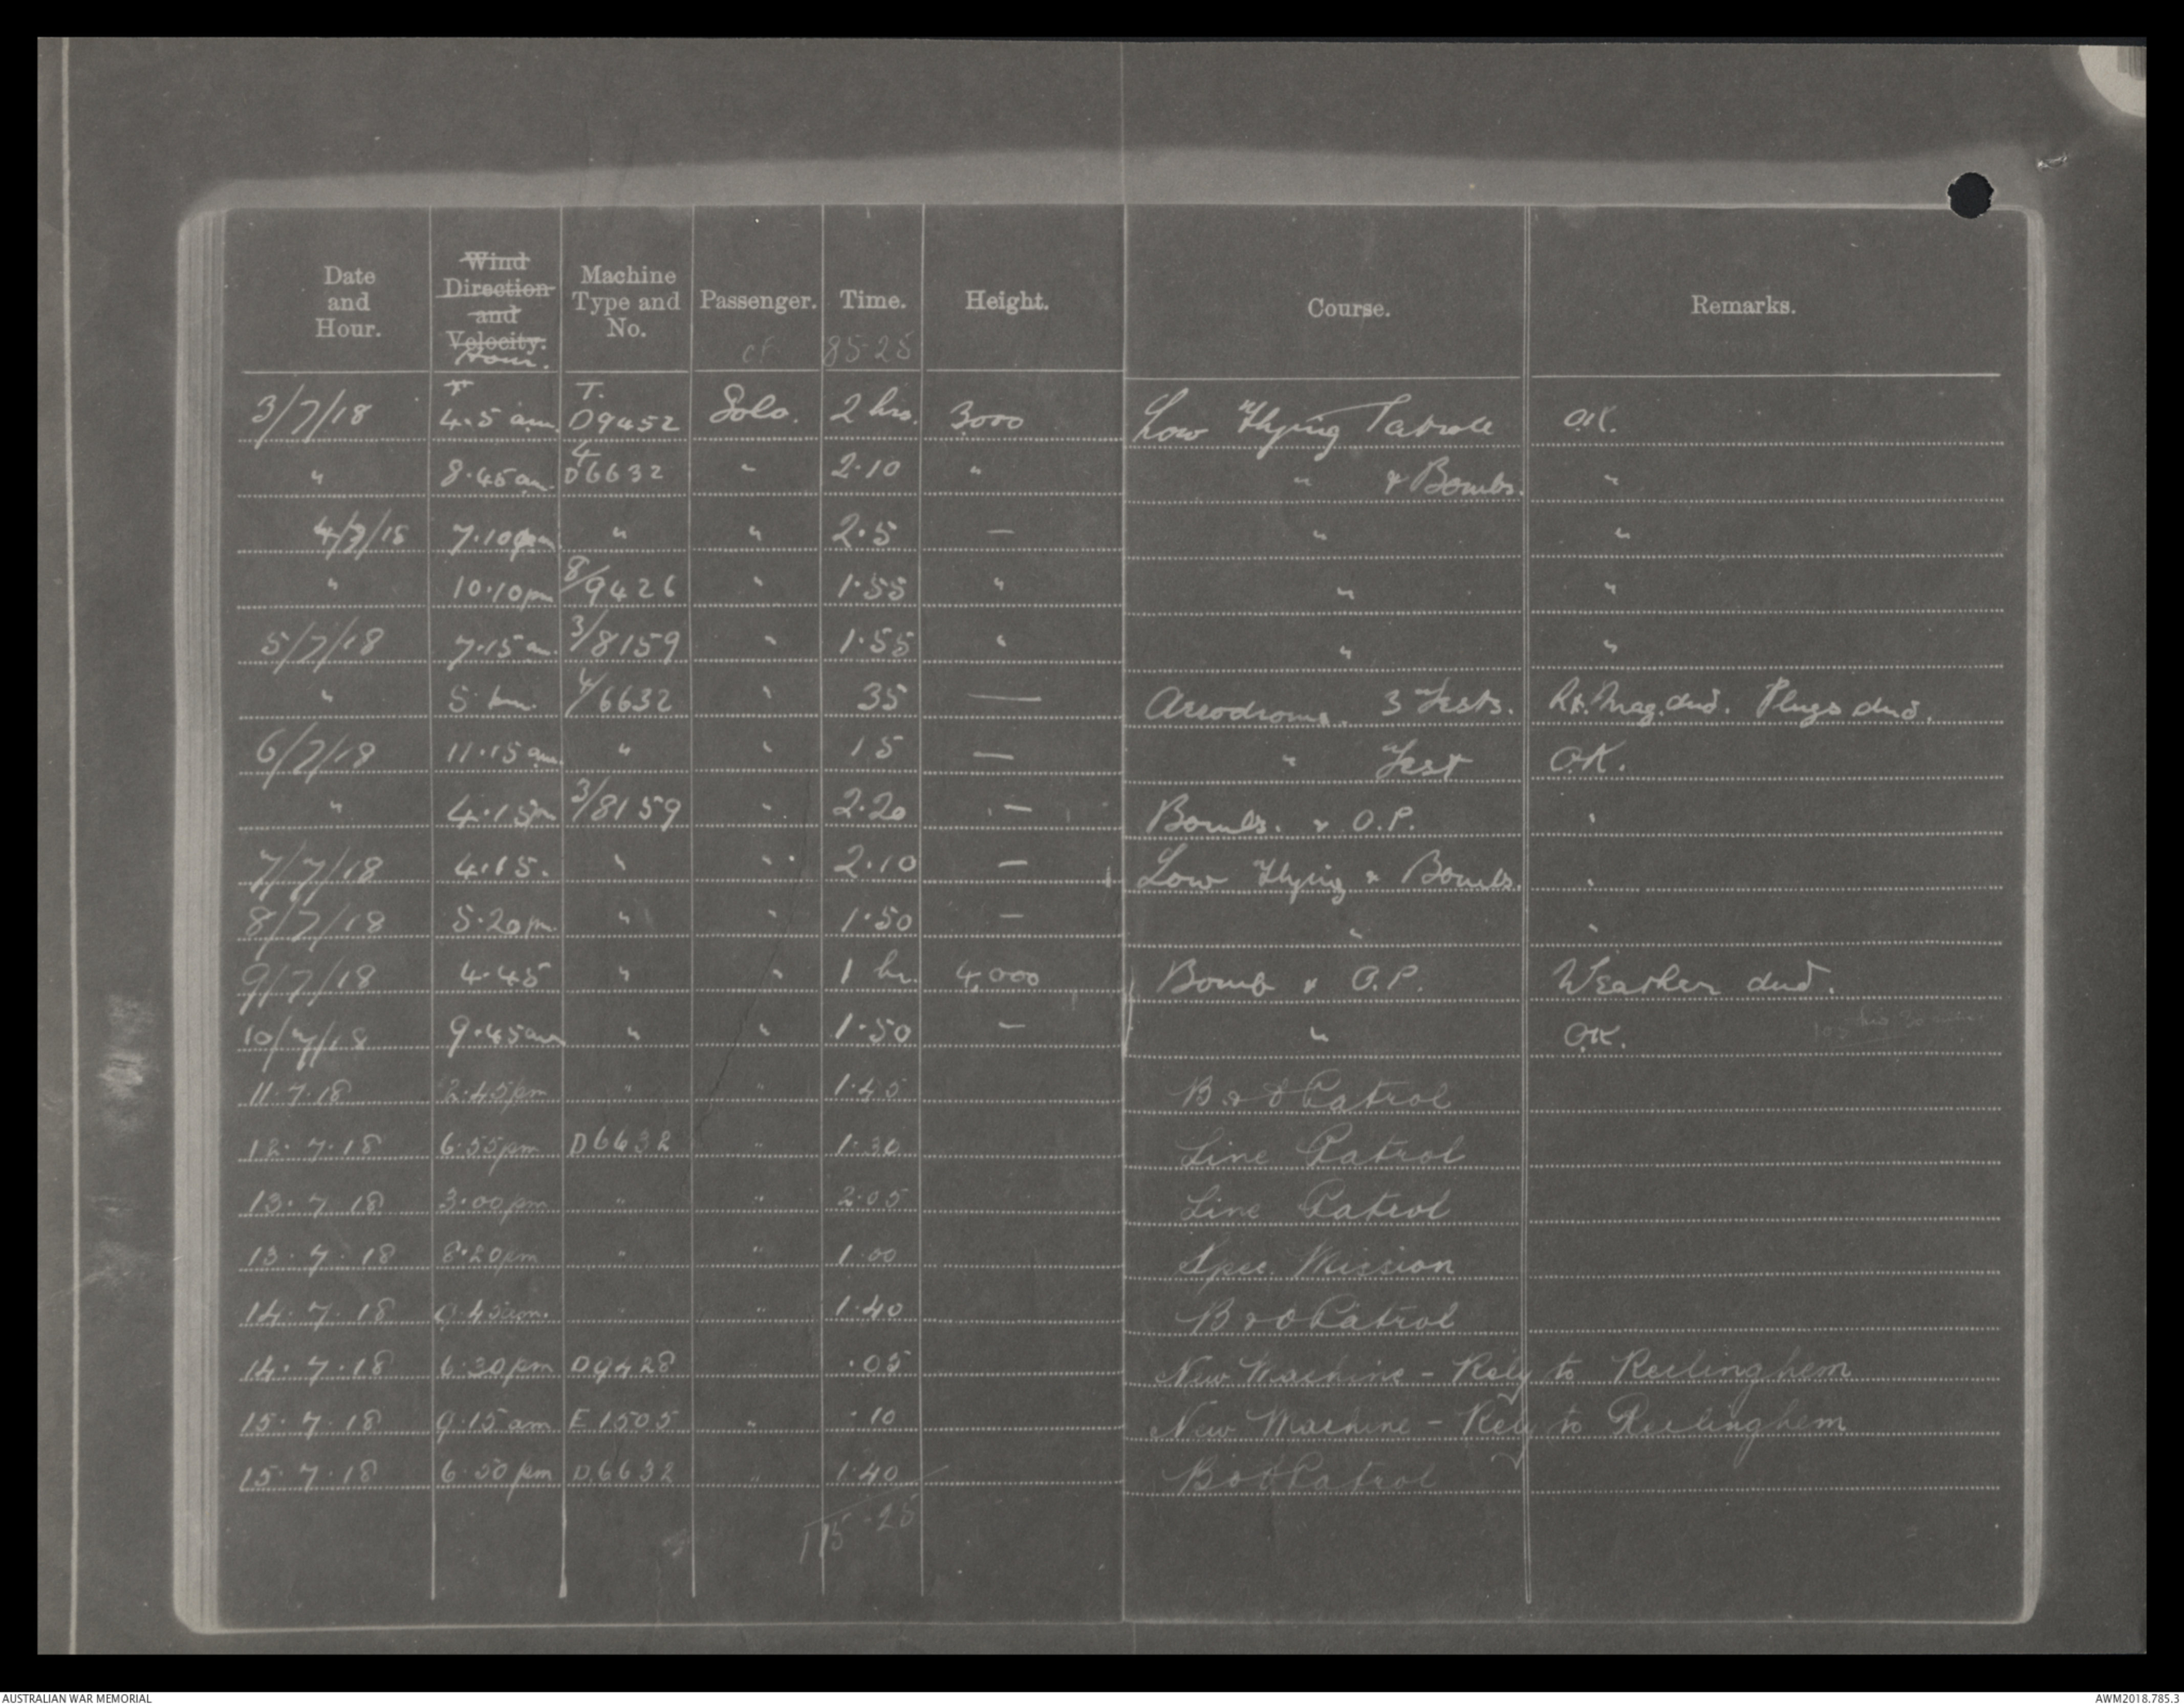 Date and Hour. Wind Direction and Velocity. Hour. Machine Type and No. Passenger. Time. Height. Course. Remarks.
cf 85·25
3/7/18 4.5 am. T. D9452 Solo. 2 hrs. 3000 Low Flying Patrol O.K.
" 8.45 am. 4 D6632 " 2·10 " " & Bombs. "
4/7/18 7.10 " " 2·5 — " "
" 10.10 pm 8/9426 " 1·55 " " "
5/7/18 7.15 am. 3/8159 " 1·55 " " "
" 5 4/6632 " 35 — Aerodrome. 3 Tests. Rt. Mag. dud. Plugs dud.
6/7/18 11.15 am. " " 15 — " Test O.K.
" 4.15 pm 3/8159 " 2·20 — Bombs. & O.P. "
7/7/18 4.15. " " 2·10 — Low Flying & Bombs. "
8/7/18 5.20 pm. " " 1·50 — " "
9/7/18 4.45 " " 1 hr. 4,000 Bomb & O.P. Weather dud.
10/7/18 9.45 am " " 1·50 — " O.K.
11·7·18 2.45 pm " " 1·45 B. & O Patrol
12·7·18 6.55 pm D6632 " 1·30 Line Patrol
13·7·18 3.00 pm " " 2·05 Line Patrol
13·7·18 8.20 pm " " 1·00 Spec. Mission
14·7·18 " " 1·40 B & O Patrol
14·7·18 6.30 pm D9428 " ·05 New Machine – Rely to Reclinghem
15·7·18 9.15 am E1505 " ·10 New Machine – Rely to Reclinghem
15·7·18 6.50 pm D6632 " 1·40 B & O Patrol
115·25
AUSTRALIAN WAR MEMORIAL AWM2018.785.3